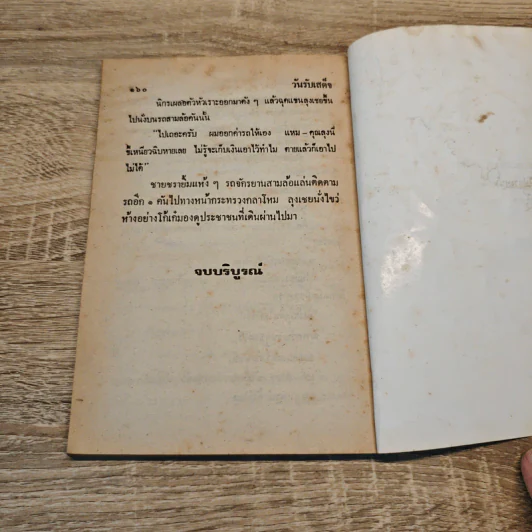 ๑๖๐ วันรับเสด็จ
นิกรเผลอตัวหัวเราะออกมาดัง ๆ แล้วฉุดแขนลุงเชยขึ้น
ไปนั่งบนรถสามล้อคันนั้น
"ไปเถอะครับ ผมออกค่ารถให้เอง แหม – คุณลุงนี่
ขี้เหนียวฉิบหายเลย ไม่รู้จะเก็บเงินเอาไว้ทำไม ตายแล้วก็เอาไป
ไม่ได้"
ชายชรายิ้มแห้ง ๆ รถจักรยานสามล้อแล่นติดตาม
รถอีก ๑ คันไปทางหน้ากระทรวงกลาโหม ลุงเชยนั่งไขว่
ห้างอย่างโก้เก๋มองดูประชาชนที่เดินผ่านไปมา
จบบริบูรณ์